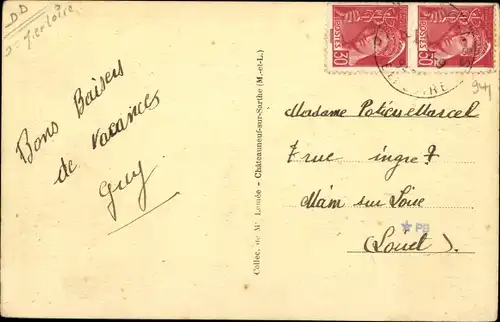 DD
Bons Baisers
de vacances
Guy
Collec. de Mᵐ Lembé - Châteauneuf-sur-Sarthe (M.-et-L.)
POSTES
30
POSTES
30
941
Madame Potier Marcel
7 rue ingre 7
Main sur Loire
(Loiret).
PB